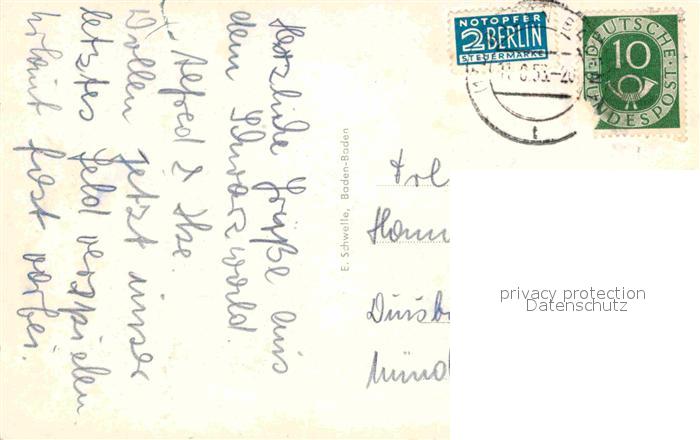 Herzliche Grüße aus
dem Schwarzwald
Alfred & Ilse.
Wollen jetzt unser
letztes Geld verspielen
Urlaub fast vorbei.
E. Schwelle, Baden-Baden
NOTOPFER
2 BERLIN
STEUERMARKE
DEUTSCHE
10
BUNDESPOST
Frl
Hann
Duisb
Münd
privacy protection
Datenschutz